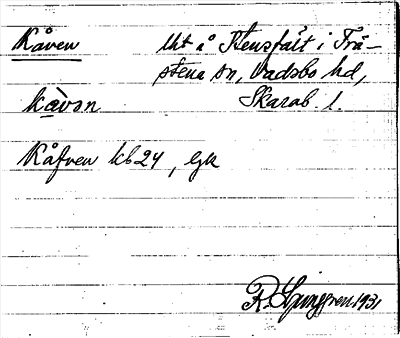 Kåven
Uht å Stensfält i Frä-
stena sn, Vadsbo hd,
Skarab. l.
kàvən
Kåfven kb24, Egk
R. Ljunggren 1931